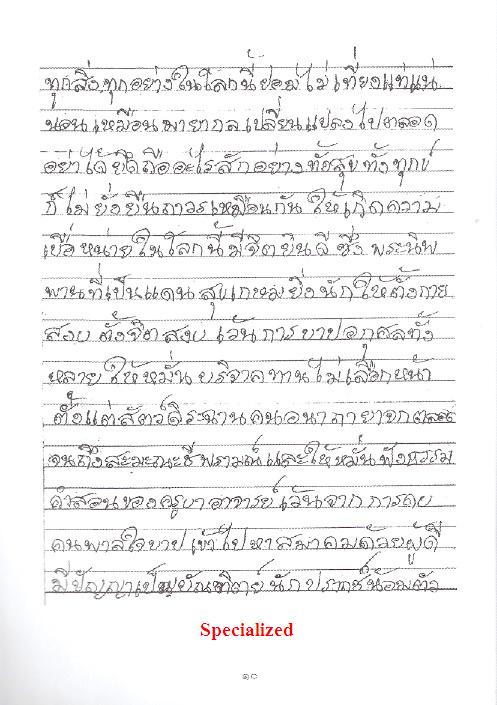 ทุกสิ่งทุกอย่างในโลกนี้ย่อมไม่เที่ยงแท้แน่
นอนเหมือนมายากลเปลี่ยนแปลงไปตลอด
อย่าได้ยึดถืออะไรสักอย่างทั้งสุขทั้งทุกข์
ก็ไม่ยั่งยืนถาวรเหมือนกัน ให้เกิดความ
เบื่อหน่ายในโลกนี้มีจิตยินดีซึ่งพระนิพ
พานที่เป็นแดนสุขเกษมยิ่งนักให้ตั้งกาย
สงบ ตั้งจิตสงบ เว้นการบาปอกุศลทั้ง
หลายให้หมั่นบริจาคทานไม่เลือกหน้า
ตั้งแต่สัตว์ดิระฉานคนอนาถายาจกตลอด
จนถึงสะมะณะชีพราหมณ์และให้หมั่นฟังธรรม
คำสอนของครูบาอาจารย์เว้นจากการคบ
คนพาลใจบาปเข้าไปหาสมาคมด้วยผู้ดี
มีปัญญาเป็นบัณฑิตย์นักปราชญ์น้อมตัว
Specialized
๑๐